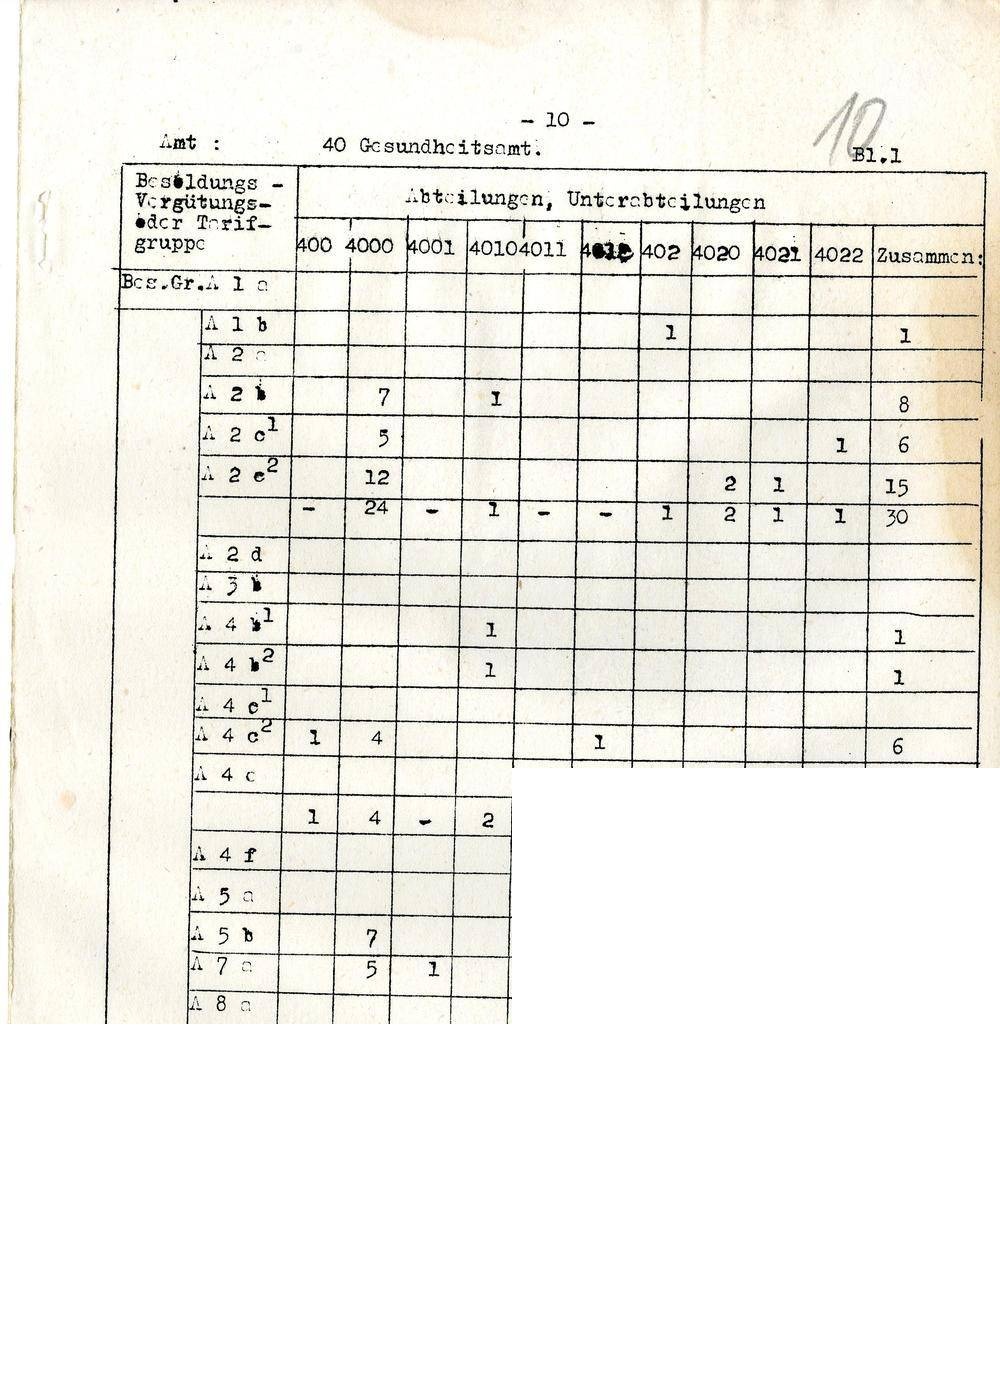 - 10 -
10
Amt : 40 Gesundheitsamt. Bl.1
Besoldungs - Vergütungs- oder Tarif- gruppe
Abteilungen, Unterabteilungen
400 4000 4001 4010 4011 402 4020 4021 4022 Zusammen:
Bes.Gr.A 1 a
A 1 b 1 1
A 2 a
A 2 b 7 1 8
A 2 c1 5 1 6
A 2 c2 12 2 1 15
- 24 - 1 - - 1 2 1 1 30
A 2 d
A 3 b
A 4 b1 1 1
A 4 b2 1 1
A 4 c1
A 4 c2 1 4 1 6
A 4 c
1 4 - 2
A 4 f
A 5 a
A 5 b 7
A 7 a 5 1
A 8 a